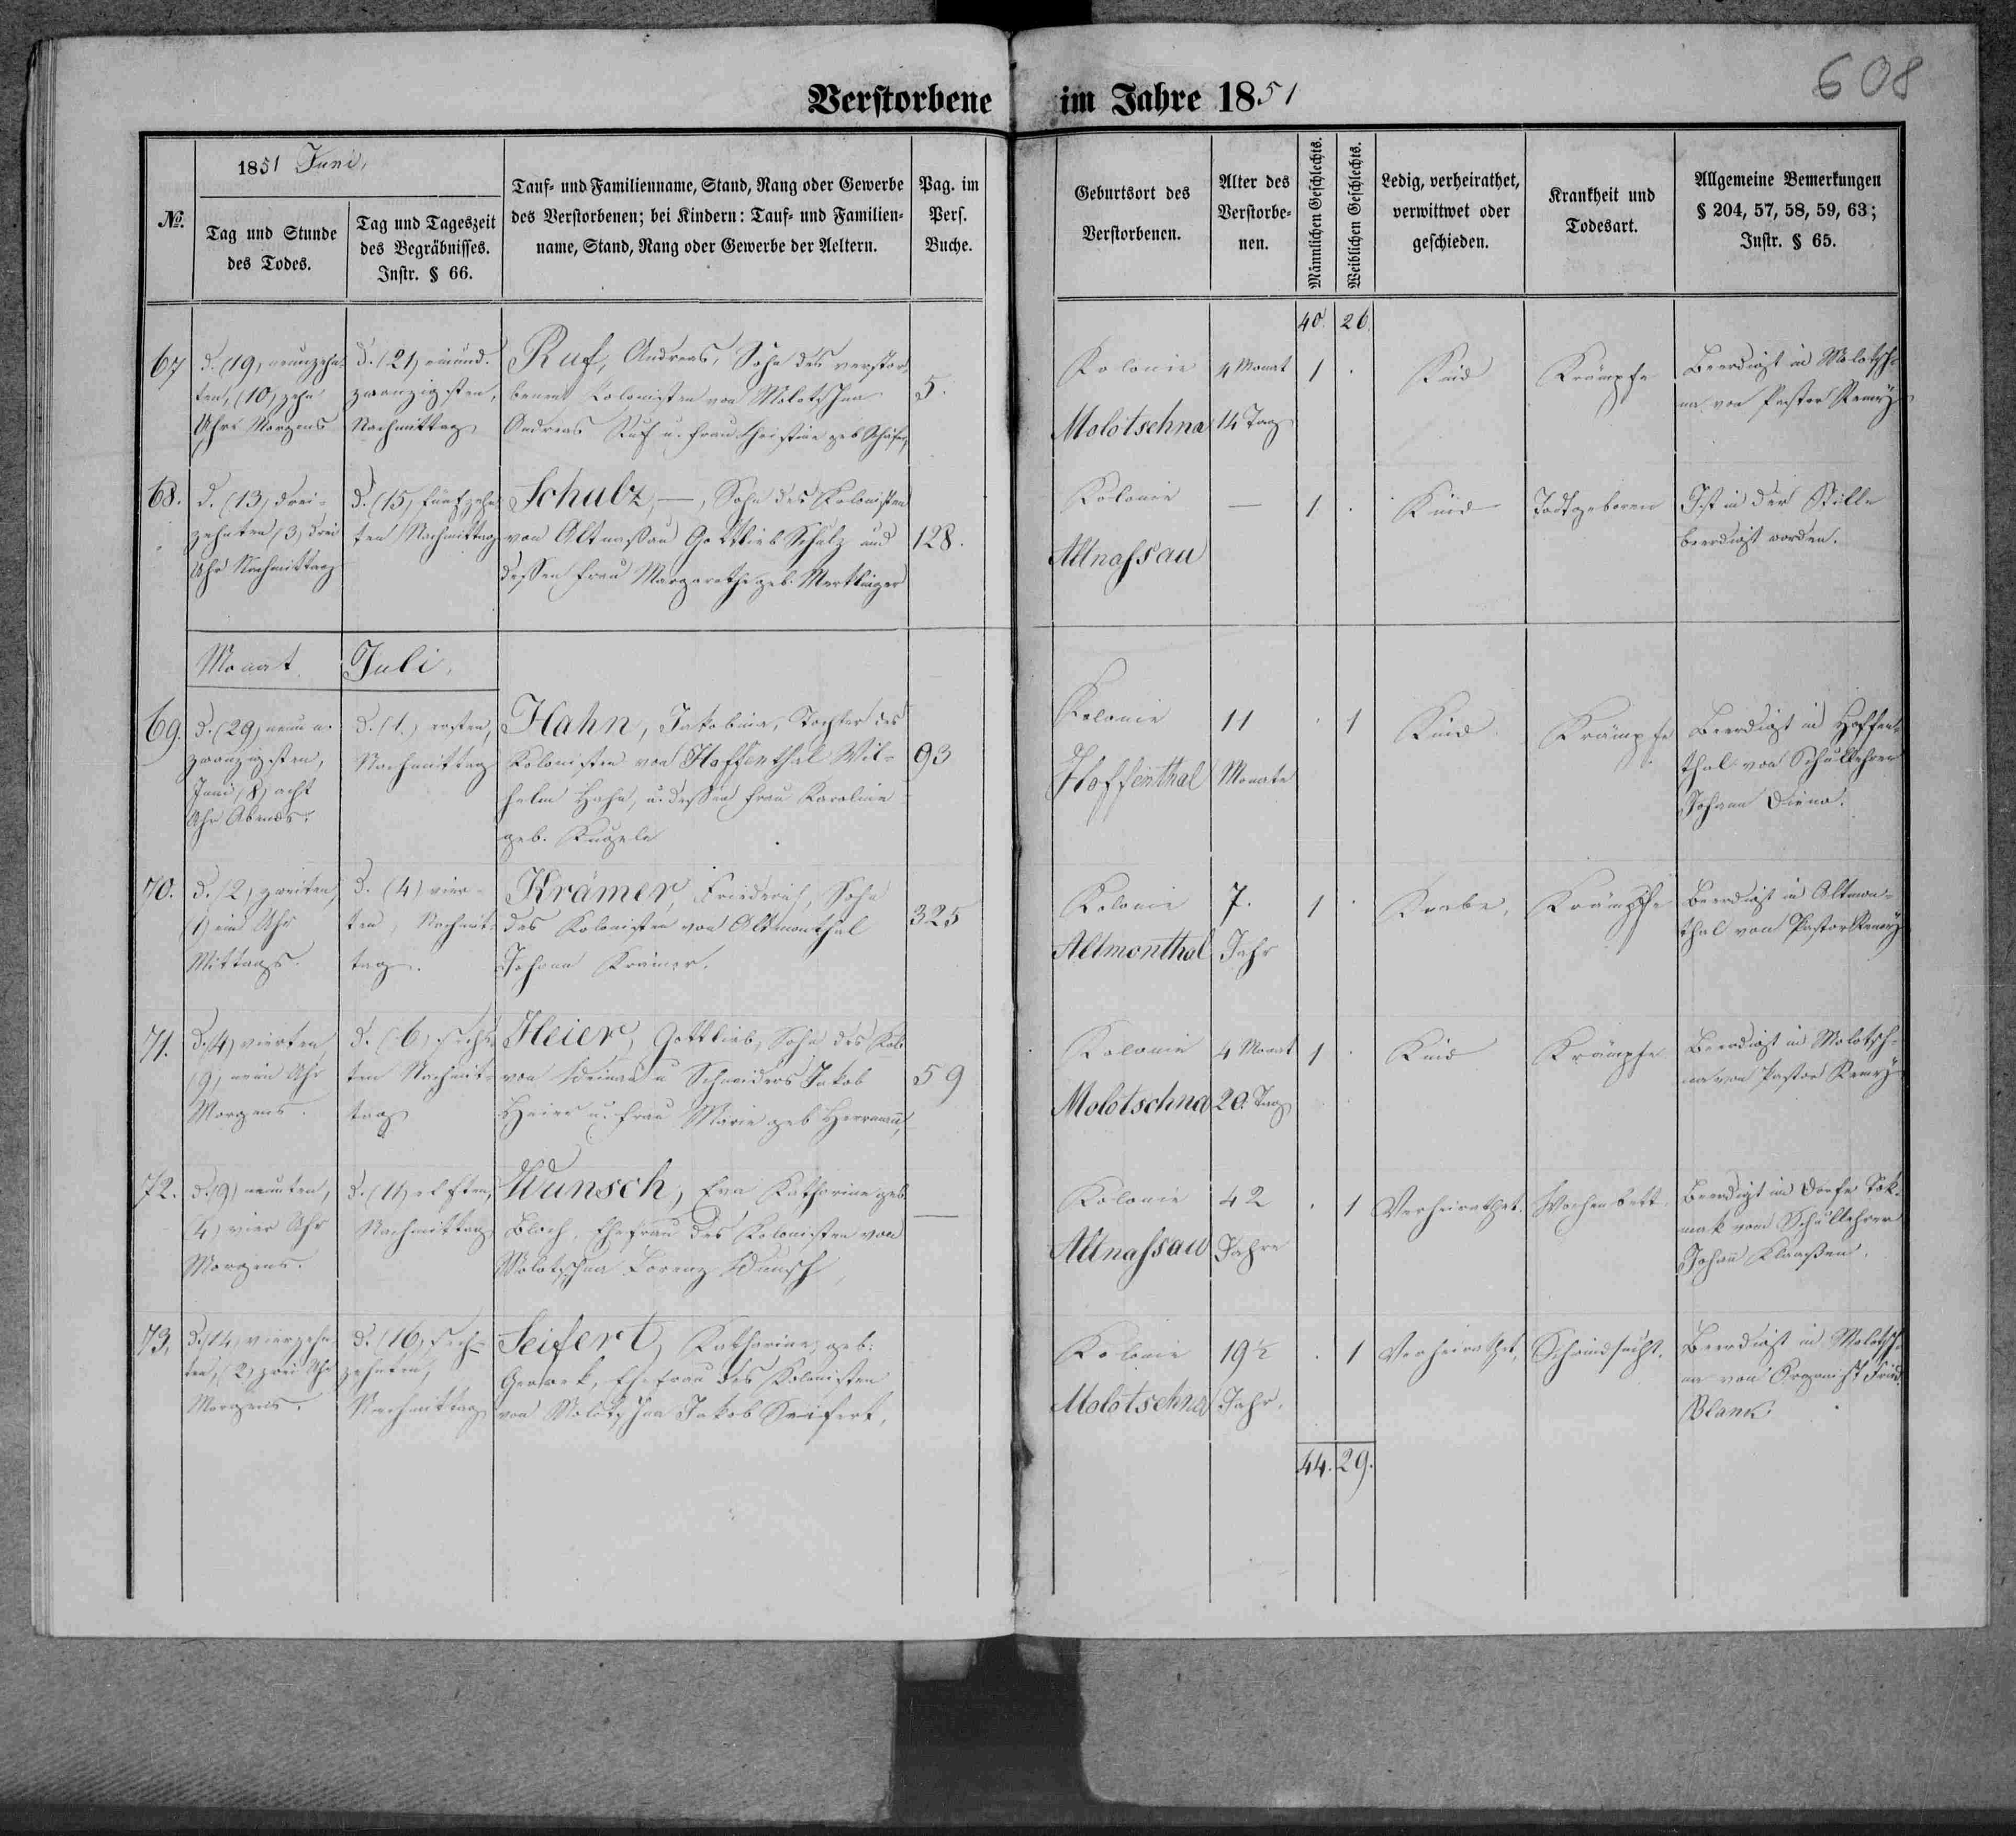 608
Verstorbene im Jahre 1851
№.
1851 Juni.
Tag und Stunde
des Todes.
Tag und Tageszeit
des Begräbnisses.
Instr. § 66.
Tauf- und Familienname, Stand, Rang oder Gewerbe
des Verstorbenen; bei Kindern: Tauf- und Familien-
name, Stand, Rang oder Gewerbe der Aeltern.
Pag. im
Pers.
Buche.
Geburtsort des
Verstorbenen.
Alter des
Verstorbe-
nen.
Männlichen Geschlechts.
Weiblichen Geschlechts.
Ledig, verheirathet,
verwittwet oder
geschieden.
Krankheit und
Todesart.
Allgemeine Bemerkungen
§ 204, 57, 58, 59, 63;
Instr. § 65.
40. 26.
67
d. (19) neunzehn-
ten, (10) zehn
Uhr Morgens
d. (21) einund-
zwanzigsten,
Nachmittag
Ruf, Andreas, Sohn des verstor-
benen Kolonisten von Molotschna
Andreas Ruf u. Frau Christine geb. Schäfer,
5.
Kolonie
Molotschna
4 Monat
14 Tag
1 .
Kind
Krämpfe
Beerdigt in Molotsch-
na von Pastor Remy
68.
d. (13) drei-
zehnten (3) drei
Uhr Nachmittag
d. (15) fünfzehn-
ten Nachmittag
Schulz, —, Sohn des Kolonisten
von Altnassau Gottlieb Schulz und
dessen Frau Margarethe geb. Mertlinger
128.
Kolonie
Altnassau
—
1 .
Kind
Todtgeboren
Ist in der Stille
beerdigt worden.
Monat Juli.
69.
d. (29) neun u.
zwanzigsten,
Juni, (8) acht
Uhr Abends.
d. (1.) ersten,
Nachmittag
Hahn, Jakobina, Tochter des
Kolonisten von Hoffenthal Wil-
helm Hahn, u. dessen Frau Karoline
geb. Kugele
93
Kolonie
Hoffenthal
11
Monate
. 1
Kind.
Krämpfe
Beerdigt in Hoffen-
thal von Schullehrer
Johann
70.
d. (2) zweiten,
(1) ein Uhr
Mittags.
d. (4) vier-
ten, Nachmit-
tag.
Krämer, Friedrich, Sohn
des Kolonisten von Altmonthal
Johann Krämer.
325
Kolonie
Altmonthal
7.
Jahr
1 .
Knabe.
Krämpfe
Beerdigt in Altmon-
thal von Pastor Remy
71.
d. (4) vierten
(9) neun Uhr
Morgens.
d. (6) sechs-
ten Nachmit-
tag
Heier, Gottlieb, Sohn des Kol.
von Weinau u Schneiders Jakob
Heier u. Frau Marie geb Herrmann,
59
Kolonie
Molotschna
4 Monat
20. Tag
1 .
Kind
Krämpfe
Beerdigt in Molotsch-
na von Pastor Remy
72.
d. (9) neunten,
(4) vier Uhr
Morgens.
d. (11) elften,
Nachmittag
Wunsch, Eva Katharine geb.
Bloch, Ehefrau des Kolonisten von
Molotschna Lorenz Wunsch,
—
Kolonie
Altnassau
42
Jahre
. 1
Verheirathet.
Wochenbett.
Beerdigt im Dorfe Tok-
mak vom Schullehrer
Johañ Klaaßen.
73.
d. (14) vierzehn-
ten, (2) zwei Uhr
Morgens.
d. (16) sech-
zehnten,
Nachmittag
Seifert, Katharine, geb:
Ehefrau des Kolonisten
von Molotschna Jakob Seifert,
Kolonie
Molotschna
19½
Jahr.
. 1
Verheirathet,
Schwindsucht.
Beerdigt in Molotsch-
na von Organist Fried.
Blank
44. 29.